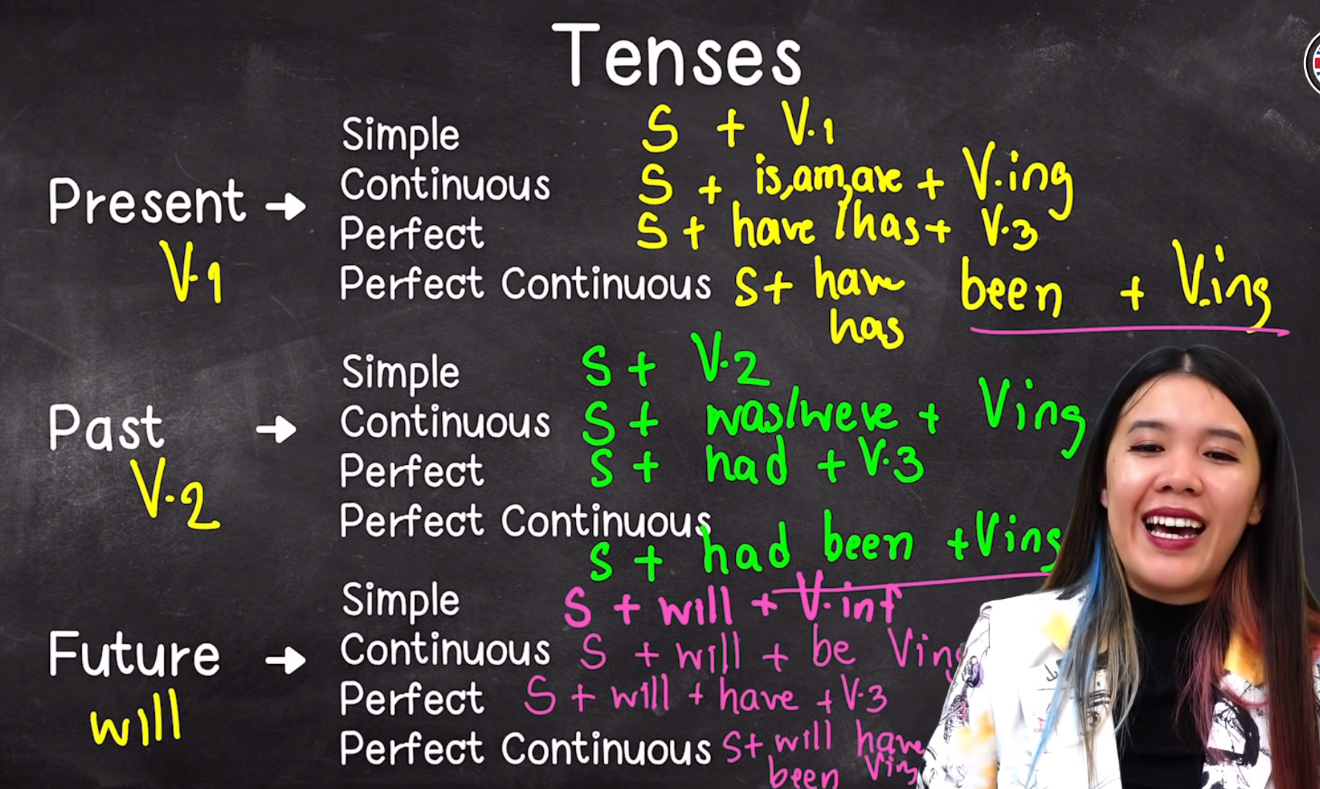 Tenses
Simple S + V.1
Continuous S + is,am,are + V.ing
Present → Perfect S + have / has + V.3
V.1
Perfect Continuous S + have been + V.ing
has
Simple S + V.2
Continuous S + was/were + Ving
Past → Perfect S + had + V.3
V.2
Perfect Continuous
S + had been + Ving
Simple S + will + V.inf
Continuous S + will + be Ving
Future → Perfect S + will + have + V.3
will
Perfect Continuous S + will have
been Ving